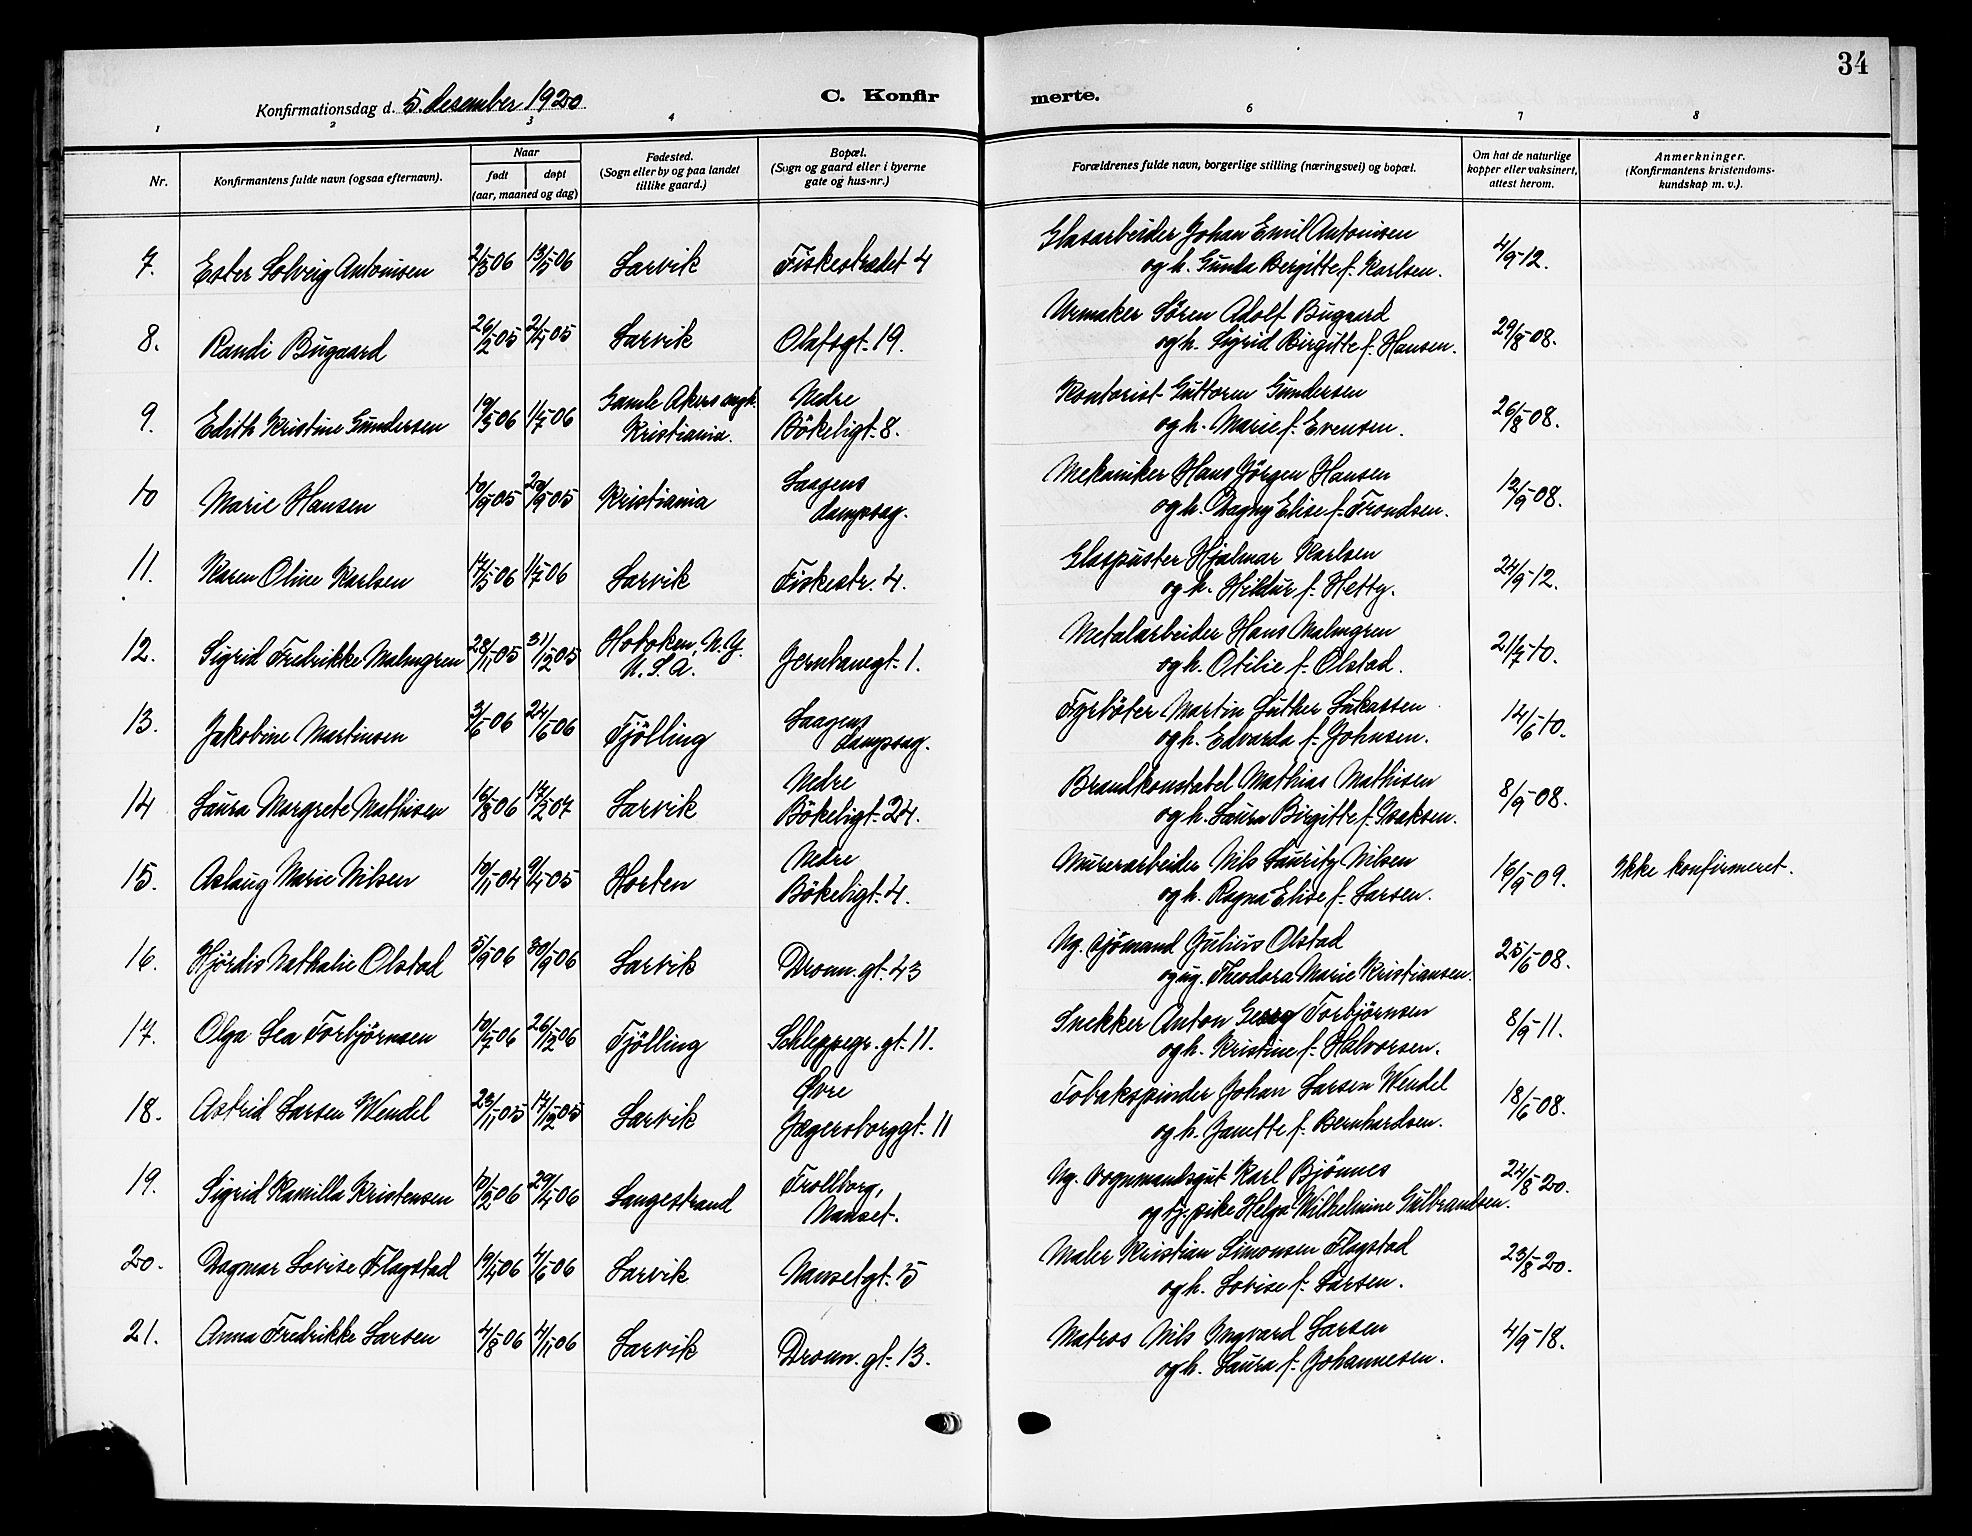 34
Konfirmationsdag d. 5. desember 1920
C. Konfirmerte.
1 2 3 4 6 7 8
Nr.
Konfirmantens fulde navn (ogsaa efternavn).
Naar
født
døpt
(aar, maaned og dag)
Fødested.
(Sogn eller by og paa landet
tillike gaard.)
Bopæl.
(Sogn og gaard eller i byerne
gate og hus-nr.)
Forældrenes fulde navn, borgerlige stilling (næringsvei) og bopæl.
Om hat de naturlige
kopper eller vaksinert,
attest herom.
Anmerkninger.
(Konfirmantens kristendoms-
kundskap m. v.).
7. Ester Solveig Antonisen 2/3-06 13/5-06 Larvik Fiskestrædet 4 Glasarbeider Johan Emil Antonisen
og h. Gunda Bergitte f. Karlsen. 4/9-12.
8. Randi Bugaard 26/2-05 2/4-05 Larvik Olafsgt. 19. Urmaker Søren Adolf Bugaard
og h. Sigrid Birgitte f. Hansen. 29/8-08.
9. Edith Kristine Gundersen 19/3-06 1/7-06 Gamle Akers mgh. Kristiania. Nedre Bökeligt. 8. Kontorist Guttorm Gundersen
og h. Marie f. Evensen. 26/8-08.
10 Marie Hansen 10/9-05 20/9-05 Kristiania Laagens dampsag. Mekaniker Hans Jörgen Hansen
og h. Dagny Elise f. Trondsen. 12/9-08.
11. Karen Oline Karlsen 14/5-06 1/7-06 Larvik Fiskestr. 4. Glaspuster Hjalmar Karlsen
og h. Hildur f. Hetty. 24/9-12.
12. Sigrid Fredrikke Malmgren 28/11-05 31/12-05 Hoboken, N.Y. U.S.A. Jernbanegt. 1. Metalarbeider Hans Malmgren
og h. Otilie f. Olstad. 21/7-10.
13. Jakobine Martinsen 3/6-06 24/6-06 Tjölling Laagens dampsag. Fyrböter Martin Luther Lukassen
og h. Edvarda f. Johnsen. 14/6-10.
14 Laura Margrete Mathisen 16/8-06 17/2-07 Larvik Nedre Bökeligt. 24. Brandkonstabel Mathias Mathisen
og h. Laura Birgitte f. Isaksen. 8/9-08.
15. Aslaug Marie Nilsen 10/11-04 9/4-05 Horten Nedre Bökeligt. 4. Murerarbeider Nils Lauritz Nilsen
og h. Ragna Elise f. Larsen. 16/9-09. Ikke konfirmeret.
16. Hjördis Nathalie Olstad 5/9-06 30/9-06 Larvik Dronn. gt. 43 Ug. sjömand Julius Olstad
og ug. Theodora Marie Kristiansen. 25/6-08.
17. Olga Lea Torbjörnsen 10/7-06 26/12-06 Tjölling Schleppegr. gt. 11. Snekker Anton Georg Torbjörnsen
og h. Kristine f. Halvorsen. 8/9-11.
18. Astrid Larsen Wendel 23/11-05 17/12-05 Larvik Øvre Jægersborggt. 11 Tobakspinder Johan Larsen Wendel
og h. Janette f. Bernhardsen. 18/6-08.
19. Sigrid Kamilla Kristensen 10/2-06 29/4-06 Langestrand Trollborg, Nanset. Ug. vognmandsgut Karl Bjönnes
og tj. pike Helga Wilhelmine Gulbrandsen. 24/8-20.
20. Dagmar Lovise Flagstad 19/4-06 4/6-06 Larvik Nansetgt. 5 Maler Kristian Simonsen Flagstad
og h. Lovise f. Larsen. 23/8-20.
21. Anna Fredrikke Larsen 4/8-06 4/11-06 Larvik Dronn. gt. 13. Matros Nils Ingvard Larsen
og h. Laura f. Johannesen. 4/9-18.